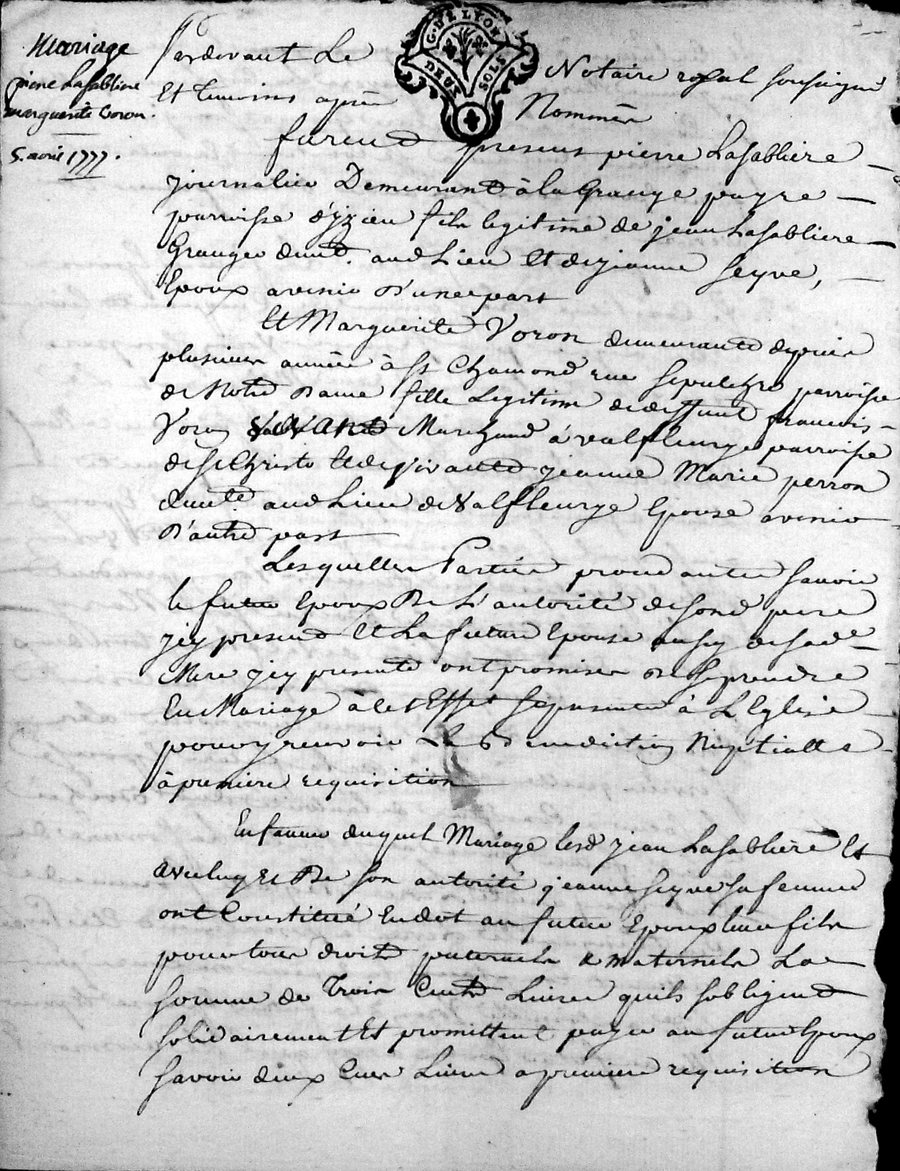 Mariage
pierre Lasabliere
marguerite Voron.
5. avril 1777.
GUE LYON
DEUX SOLS
Pardevant Le Notaire royal soussigné
Et temoins après Nommés
furent presens pierre Lasabliere
journalier Demeurant à la Grange payre
parroisse d'yzieu fils legitime de jean Lasabliere
Granger demt. aud Lieu Et de jeanne seyve,
Epoux avenir d'une part
Et Marguerite Voron demeurante depuis
plusieurs années à st Chamond rue sepulchre parroisse
de Notre Dame fille Legitime de deffunt francois
Voron vivant Marchand à valfleurye parroisse
de st Christo et de vivante jeanne Marie perron
demte. aud Lieu de valfleurye Epouse avenir
d'autre part
Lesquelles Parties procedantes savoir
le futur Epoux De L'autorité de sond pere
jcy present Et La future Epouse aussy de sade
Mere jcy presente ont promises De se prendre
En Mariage à cet Effet se presenter à L'Eglise
pour y recevoir La Benediction Nuptialle
à premiere requisition
En faveur duquel Mariage led jean Lasabliere Et
avec luy Et De son autorité jeanne seyve sa femme
ont Constitué En dot au futur Epoux leur fils
pour tous droits paternels & maternels La
somme de Trois Cents Livres quils sobligent
solidairement Et promettent payer au futur Epoux
savoir deux Cens Livres a premiere requisition